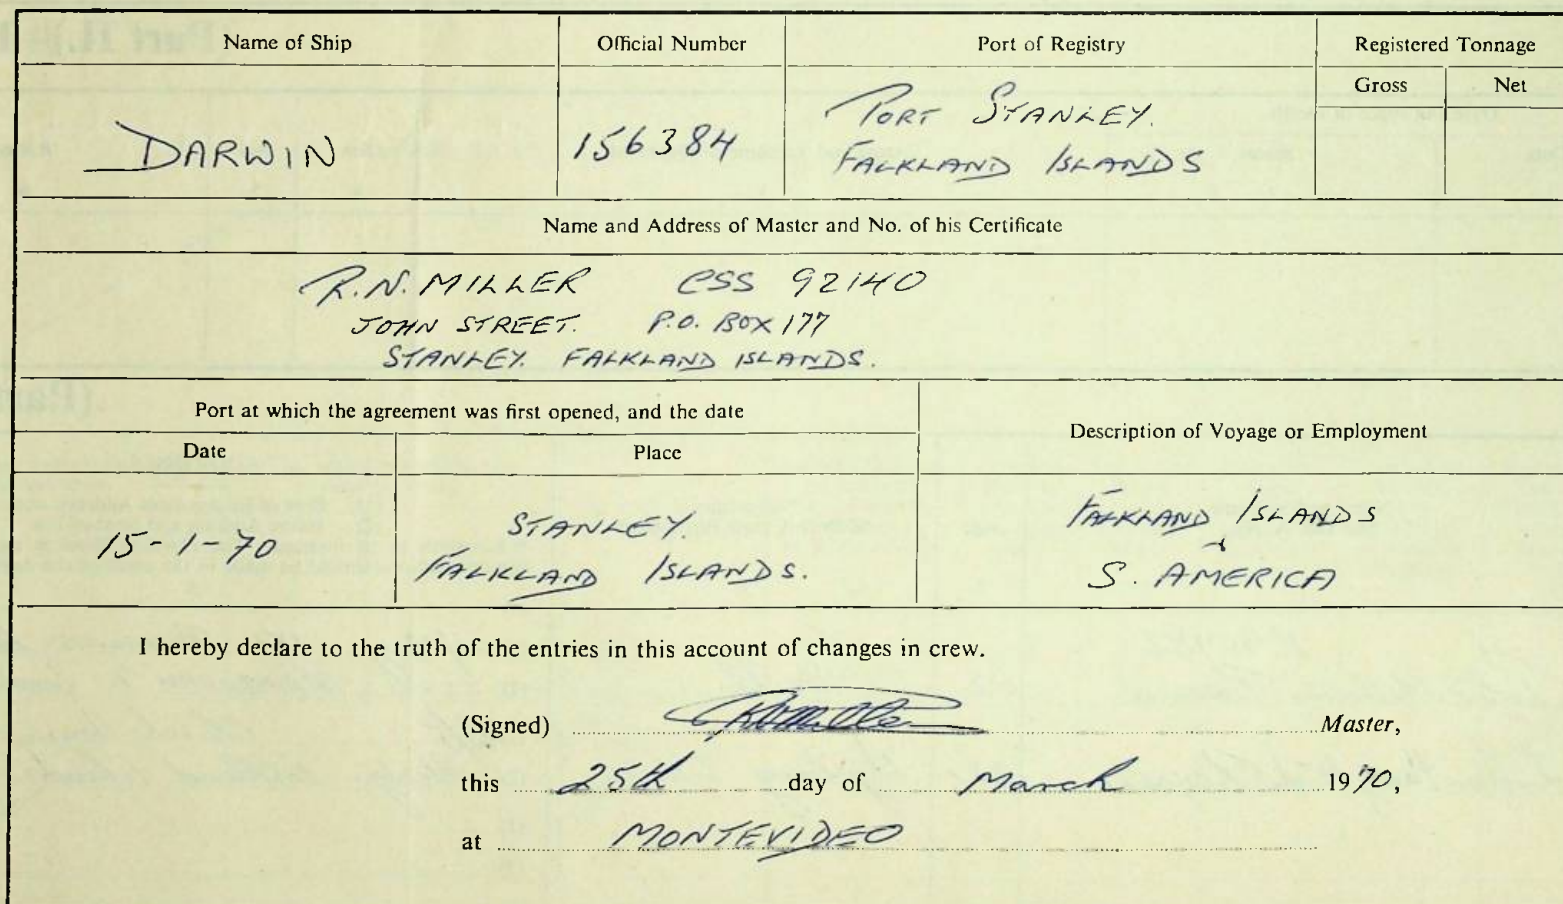 Name of Ship
Official Number
Port of Registry
Registered Tonnage
Gross
Net
DARWIN
156384
PORT STANLEY.
FALKLAND ISLANDS
Name and Address of Master and No. of his Certificate
R.N. MILLER CSS 92140
JOHN STREET. P.O. BOX 177
STANLEY. FALKLAND ISLANDS.
Port at which the agreement was first opened, and the date
Description of Voyage or Employment
Date
Place
15-1-70
STANLEY.
FALKLAND ISLANDS.
FALKLAND ISLANDS
&
S. AMERICA
I hereby declare to the truth of the entries in this account of changes in crew.
(Signed) RNMiller Master,
this 25th day of March 1970,
at MONTEVIDEO